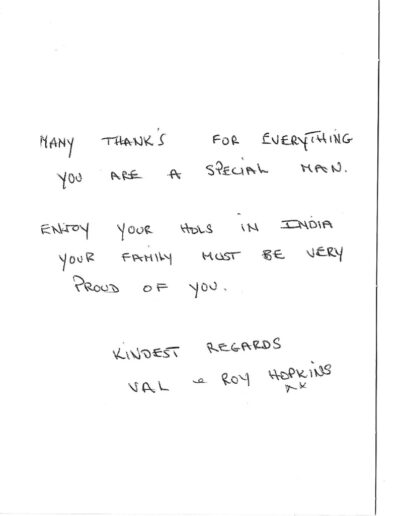 MANY THANK'S FOR EVERYTHING
YOU ARE A SPECIAL MAN.
ENJOY YOUR HOLS IN INDIA
YOUR FAMILY MUST BE VERY
PROUD OF YOU.
KINDEST REGARDS
VAL & ROY HOPKINS
xx